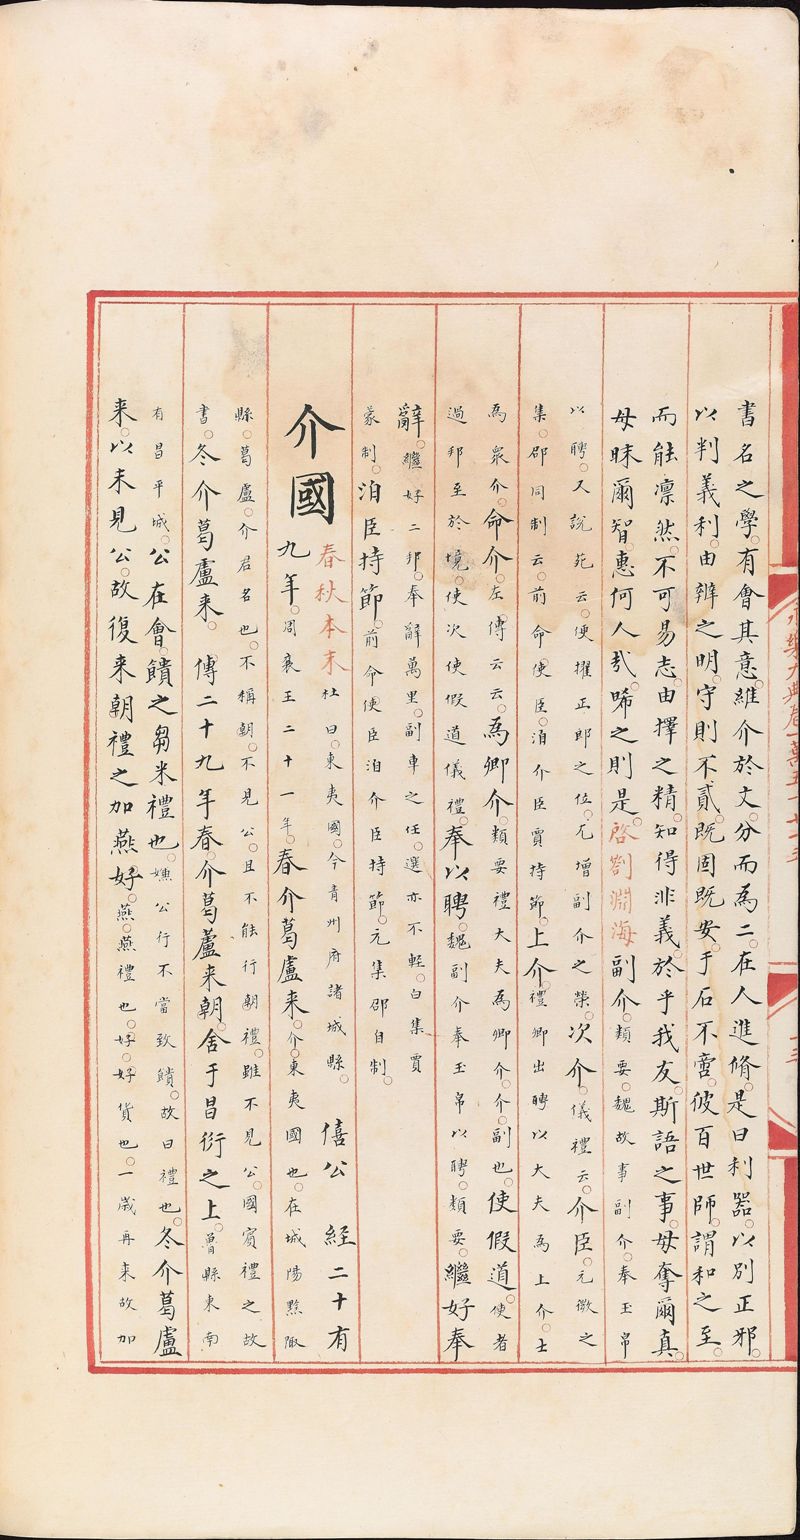 書名之學。有會其意。維介於文。分而為二。在人進脩。是曰利器。以別正邪。
以判義利。由辨之明。守則不貳。既固既安。于石不啻。彼百世師。謂和之至。
而能凛然。不可易志。由擇之精。知得非義。於乎我友。斯語之事。毋奪爾真。
毋昧爾智。惠何人㢤。晞之則是。啓劄淵海副介。類要。魏故事副介。奉玉帛
以聘。又說苑云。便擢正郎之位。尤增副介之榮。次介。儀禮云。介臣。元微之
集。郡同制云。前命使臣。洎介臣賈持節。上介。禮卿出聘以大夫為上介。士
為衆介。命介。左傳云云。為卿介。類要禮大夫為卿介。介。副也。使假道。使者
過邦至於境。使次使假道儀禮。奉以聘。魏副介奉玉帛以聘。類要。繼好奉
辭。繼好二邦。奉辭萬里。副車之任。選亦不輕。白集賈
蒙制。洎臣持節。前命使臣洎介臣持節。元集郡自制。
介國 春秋本末杜曰。東夷國。今青州府諸城縣。 僖公 經二十有
九年。周襄王二十一年。春介葛盧来。介。東夷國也。在城陽黔陬
縣。葛盧。介君名也。不稱朝。不見公。且不能行朝禮。雖不見公。國賓禮之故
書。冬介葛盧来。 傳二十九年春。介葛盧来朝。舍于昌衍之上。魯縣東南
有昌平城。公在會。饋之芻米禮也。嫌公行不當致饋。故曰禮也。冬介葛盧
来。以未見公。故復来朝禮之加燕好。燕。燕禮也。好。好貨也。一歲再来故加